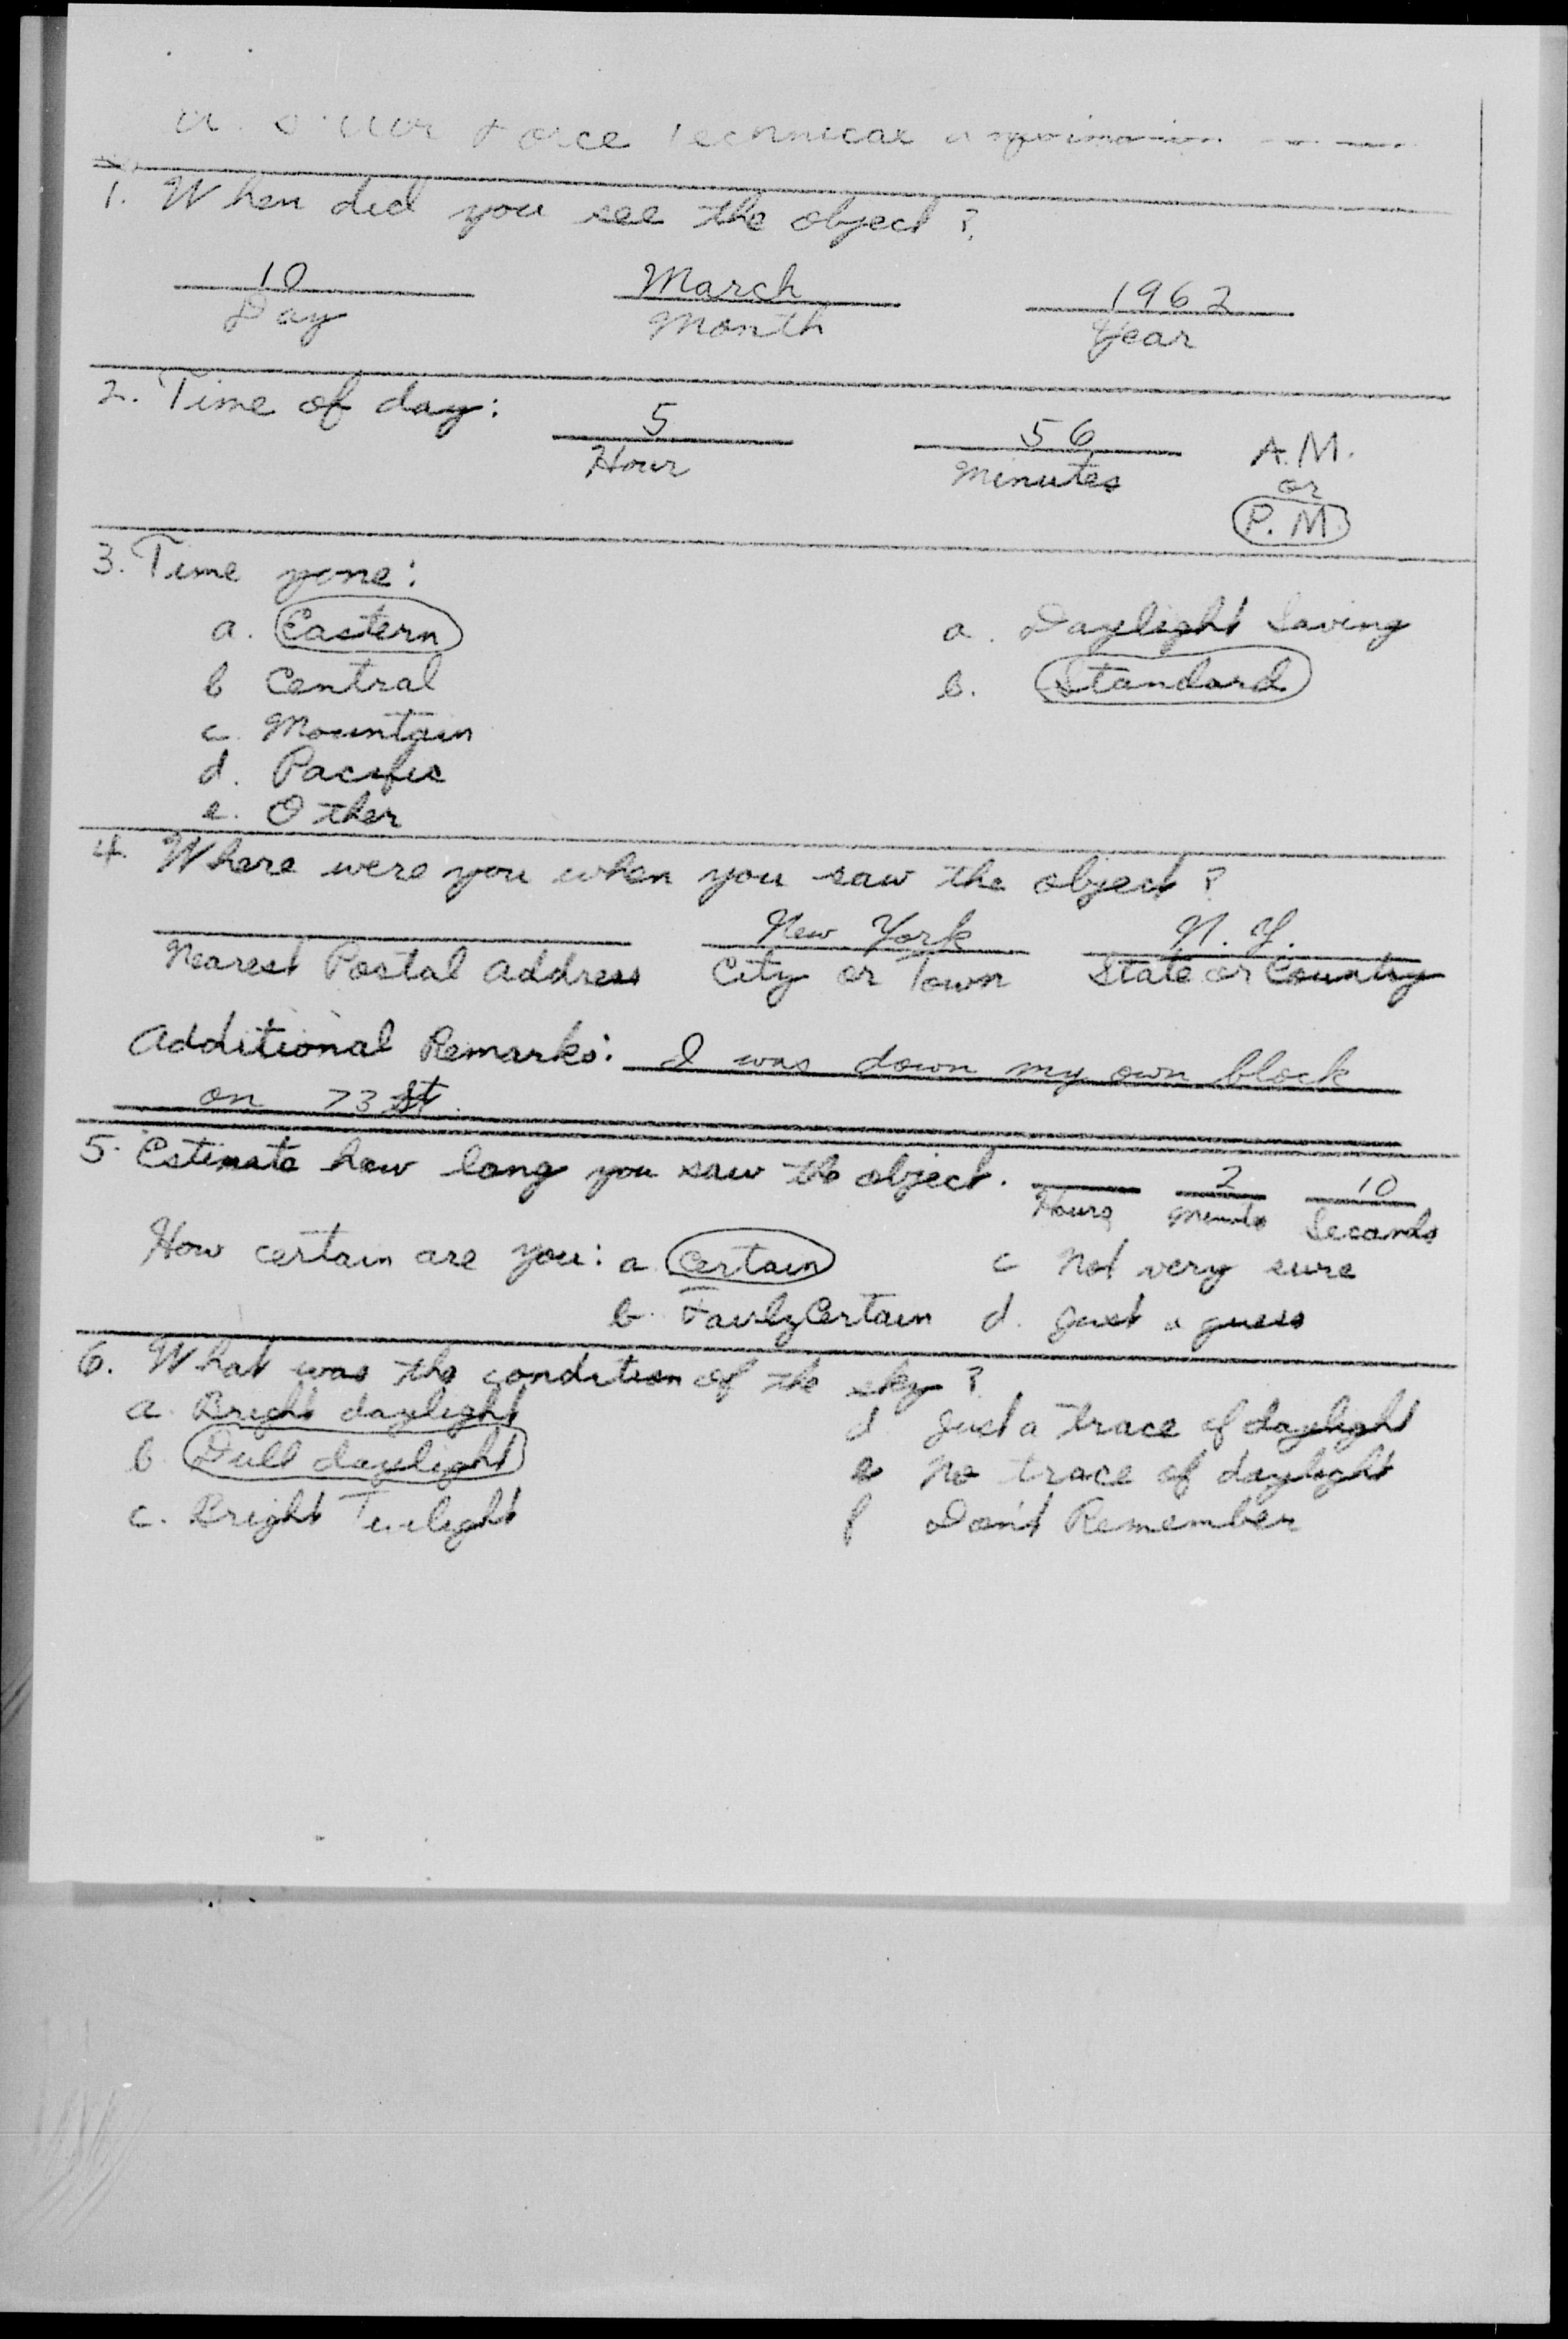 U. S. Air Force Technical
1. When did you see the object?
10 March 1962
Day Month Year
2. Time of day: 5 56 A.M.
Hour Minutes or
P.M.
3. Time zone:
a. Eastern a. Daylight Saving
b Central b. Standard
c. Mountain
d. Pacific
e. Other
4. Where were you when you saw the object?
New York N.Y.
Nearest Postal Address City or Town State or Country
Additional Remarks: I was down my own block
on 73 St.
5. Estimate how long you saw the object. 2 10
Hours Minutes Seconds
How certain are you: a. Certain c Not very sure
b. Fairly Certain d. Just a guess
6. What was the condition of the sky?
a. Bright daylight d Just a trace of daylight
b. Dull daylight e No trace of daylight
c. Bright Twilight f Don't Remember